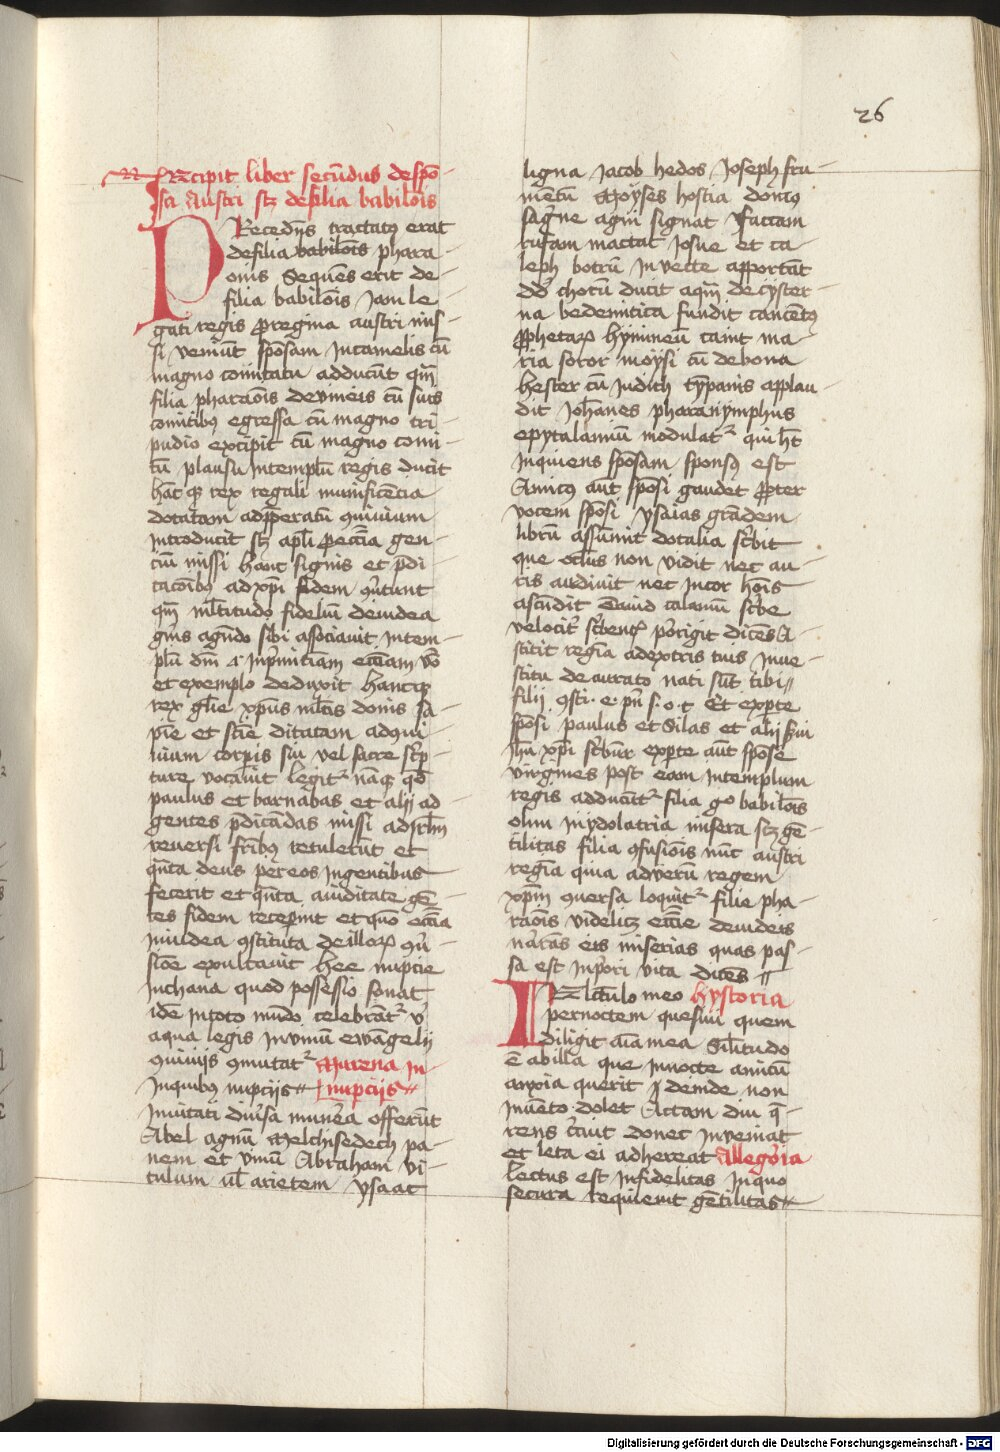 26
Incipit liber secūdus despō
sa Austri scz defilia babilōis
PRecedēs tractatꝰ erat
defilia babilōis phara
onis Sequēs erit de
filia babilōis Jam le
gati regis ꝓregina austri mis
si veniūt spōsam Incamelis cū
magno comitatu adducūt qm̄
filia pharaōis devineis cū suis
comitibꝰ egressa cū magno tri
pudio excipit cū magno comi
tū plausu Intemplū regis ducit
hāc qꝫ rex regali munificēcia
dotatam adp̄peratū ꝯuiuium
Introducit scz apl̄i ꝓecc̄ia gen
ciū missi hanc signis et p̄di
cacōibꝰ ad xp̄i fidem ꝯū̓tunt
qm̄ ml̄titudo fidelium deiudea
gr̄as agendo sibi associauit Intem
plū dm̄ ⁊ Inp̄mitiuam ecc̄iam v̓bo
et exemplo deduxit hancqꝫ
rex gl̄ie xp̄us ml̄tis donis sa
pīe et scīe ditatam adꝯui
uium corpis sui vel sacre sc̓p
ture vocauit legit᷑ nāqꝫ qd̄
paulus et barnabas et alij ad
gentes p̄dicādas missi adJrl̄m
reuersi fr̄ibꝰ retulerūt et
qn̄ta deus pereos Ingentibus
fecerit et qn̄ta auiditate gē
tes fidem receperint et quō ecc̄ia
Iniudea ꝯstituta deilloꝝ ꝯū̓
sioe exultauit hee nupcie
Inchana quod possessio sonat
idē Intoto mūdo celebrāt᷑ vt̓
aqua legis Inuinū ewāgelij
ꝯuiuijs ꝯmutat᷑ Murena In
Inquibꝰ nupcijs nupcijs
Inuitati diū̓sa munera offerūt
Abel agnū Melchisedech pa
nem et vinū Abraham vi
tulum ul̄ arietem ysaac
ligna Jacob hedos Joseph fru
mētū Moyses hostia domꝰ
sagīne agni signat Vaccam
rufam mactat Josue et ca
leph botrū Inuecte apportāt
dd̄ chorū ducit aqm̄ decyster
na bedemitica fundit cancētꝰ
ꝓphetaꝝ hymneū canit ma
ria soror moysi cū debona
hester cū Judith tȳpanis applau
dit Joh̄anes pharanymphus
epytalamiū modulat᷑ qui hꝫ
Inquiens spōsam sponsꝰ est
Amicꝰ aut̄ spōsi gaudet ꝓpter
vocem spōsi ysaias grādem
librū assūmit dotalia sc̓bit
que oclus non vidit nec au
ris audiuit nec Incor hōis
ascēdit Dauid calamū sc̓be
velocit̓ sc̓bentꝫ porrigit dicēs A
stitit regīa adextris tuis Inue
stitu deaurato nati sūt tibi
filij ꝯsti. e. pn̄ s. o. t Et exp̱te
spōsi paulus et Silas et alij serui
Jh̄u xp̄i sc̓būt exp̱te aūt spōse
virgines post eam Intemplum
regis adducūt᷑ filia gͦ babilōis
olim Inydolatria misera scz gē
tilitas filia ꝯfusiōis nūc austri
regīa quia adverū regem
xp̄m ꝯuersa loquit᷑ filie pha
raōis videlicz ecc̄ie deiudeis
narrās eis miserias quas pas
sa est Inp̓ori vita dicēs
IN lectulo meo hystoria
pernoctem quesiui quem
diligit aīa mea Sil̄itudo
ē abilla que Innocte amicū
anxia querit J deinde non
Inuēto dolet Actam diu q̄
rens c̓auit donec Inueniat
et leta ei adhereat Allegoria
lectus est Infidelitas Inquo
secura requieuit gētilitas
Digitalisierung gefördert durch die Deutsche Forschungsgemeinschaft - DFG